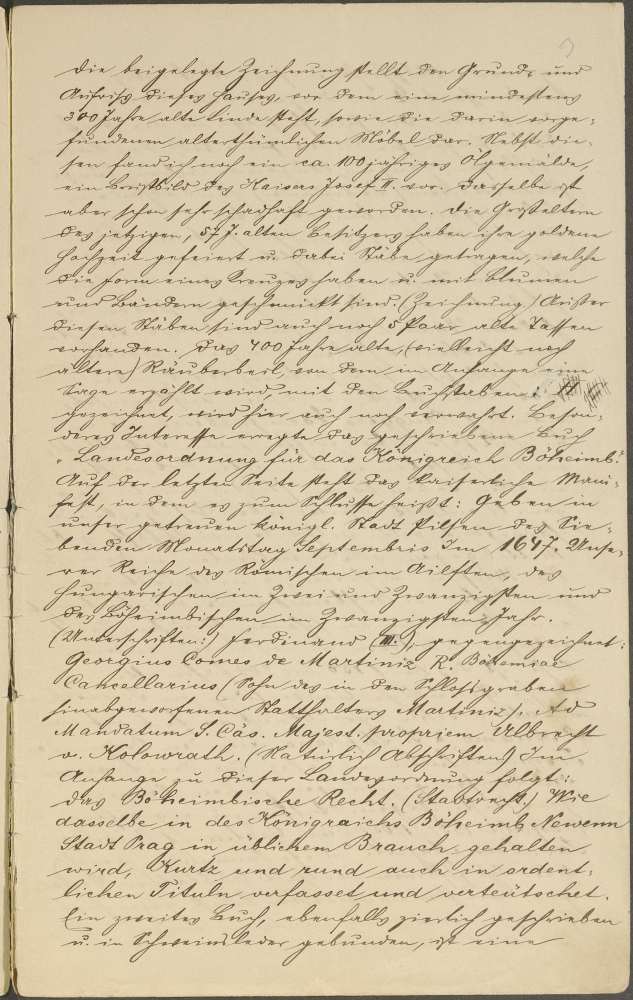 Die beigelegte Zeichnung stellt den Grund- und
Aufriss dieses Hauses, vor dem eine mindestens
300 Jahre alte Linde steht, sowie die darin vorge-
fundenen alterthümlichen Möbel dar. Nebst die-
sen fand ich noch ein ca. 100 jähriges Ölgemälde,
ein Brustbild des Kaisers Josef II. vor. Dasselbe ist
aber schon sehr schadhaft geworden. Die Großeltern
des jetzigen, 57 J. alten Besitzers haben ihre goldene
Hochzeit gefeiert u. dabei Stäbe getragen, welche
die Form eines Kreuzes haben u. mit Blumen
und Bändern geschmückt sind. (Zeichnung.) Außer
diesen Stäben sind auch noch 5 Paar alte Tassen
vorhanden. Das 400 Jahre alte, (vielleicht noch
ältere) Räuberbeil, von dem im Anfange eine
Sage erzählt wird, mit den Buchstaben
gezeichnet, wird hier auch noch verwahrt. Beson-
deres Interesse erregte das geschriebene Buch
„Landesordnung für das Königreich Böheimb."
Auf der letzten Seite steht das kaiserliche Mani-
fest, in dem es zum Schlusse heißt: Geben in
unser getreuen königl. Stadt Pilsen des Sie-
benden Monatstag Septembris Im 1647. Unse-
rer Reiche des Römischen im Ailften, des
Hungarischen im Zwei und Zwanzigsten und
des Böheimbischen im Zwanzigsten Jahr.
(Unterschriften:) Ferdinand (III.), gegengezeichnet:
Georgius Comes de Martiniz R. Bohemiae
Cancellarius (Sohn des in den Schlossgraben
hinabgeworfenen Statthalters Martiniz). Ad
Mandatum S. Cäs. Majest. propriem Albrecht
v. Kolowrath. (Natürlich Abschriften.) Im
Anhange zu dieser Landesordnung folgt:
Das Böheimbische Recht. (Stadtrecht.) Wie
dasselbe in des Königraichs Böheimb Newenn
Stadt Prag in üblichem Brauch gehalten
wird, Kurtz und rund auch in ordent-
lichen Tituln verfasset und verteütschet.
Ein zweites Buch, ebenfalls zierlich geschrieben
u. in Schweinsleder gebunden, ist eine